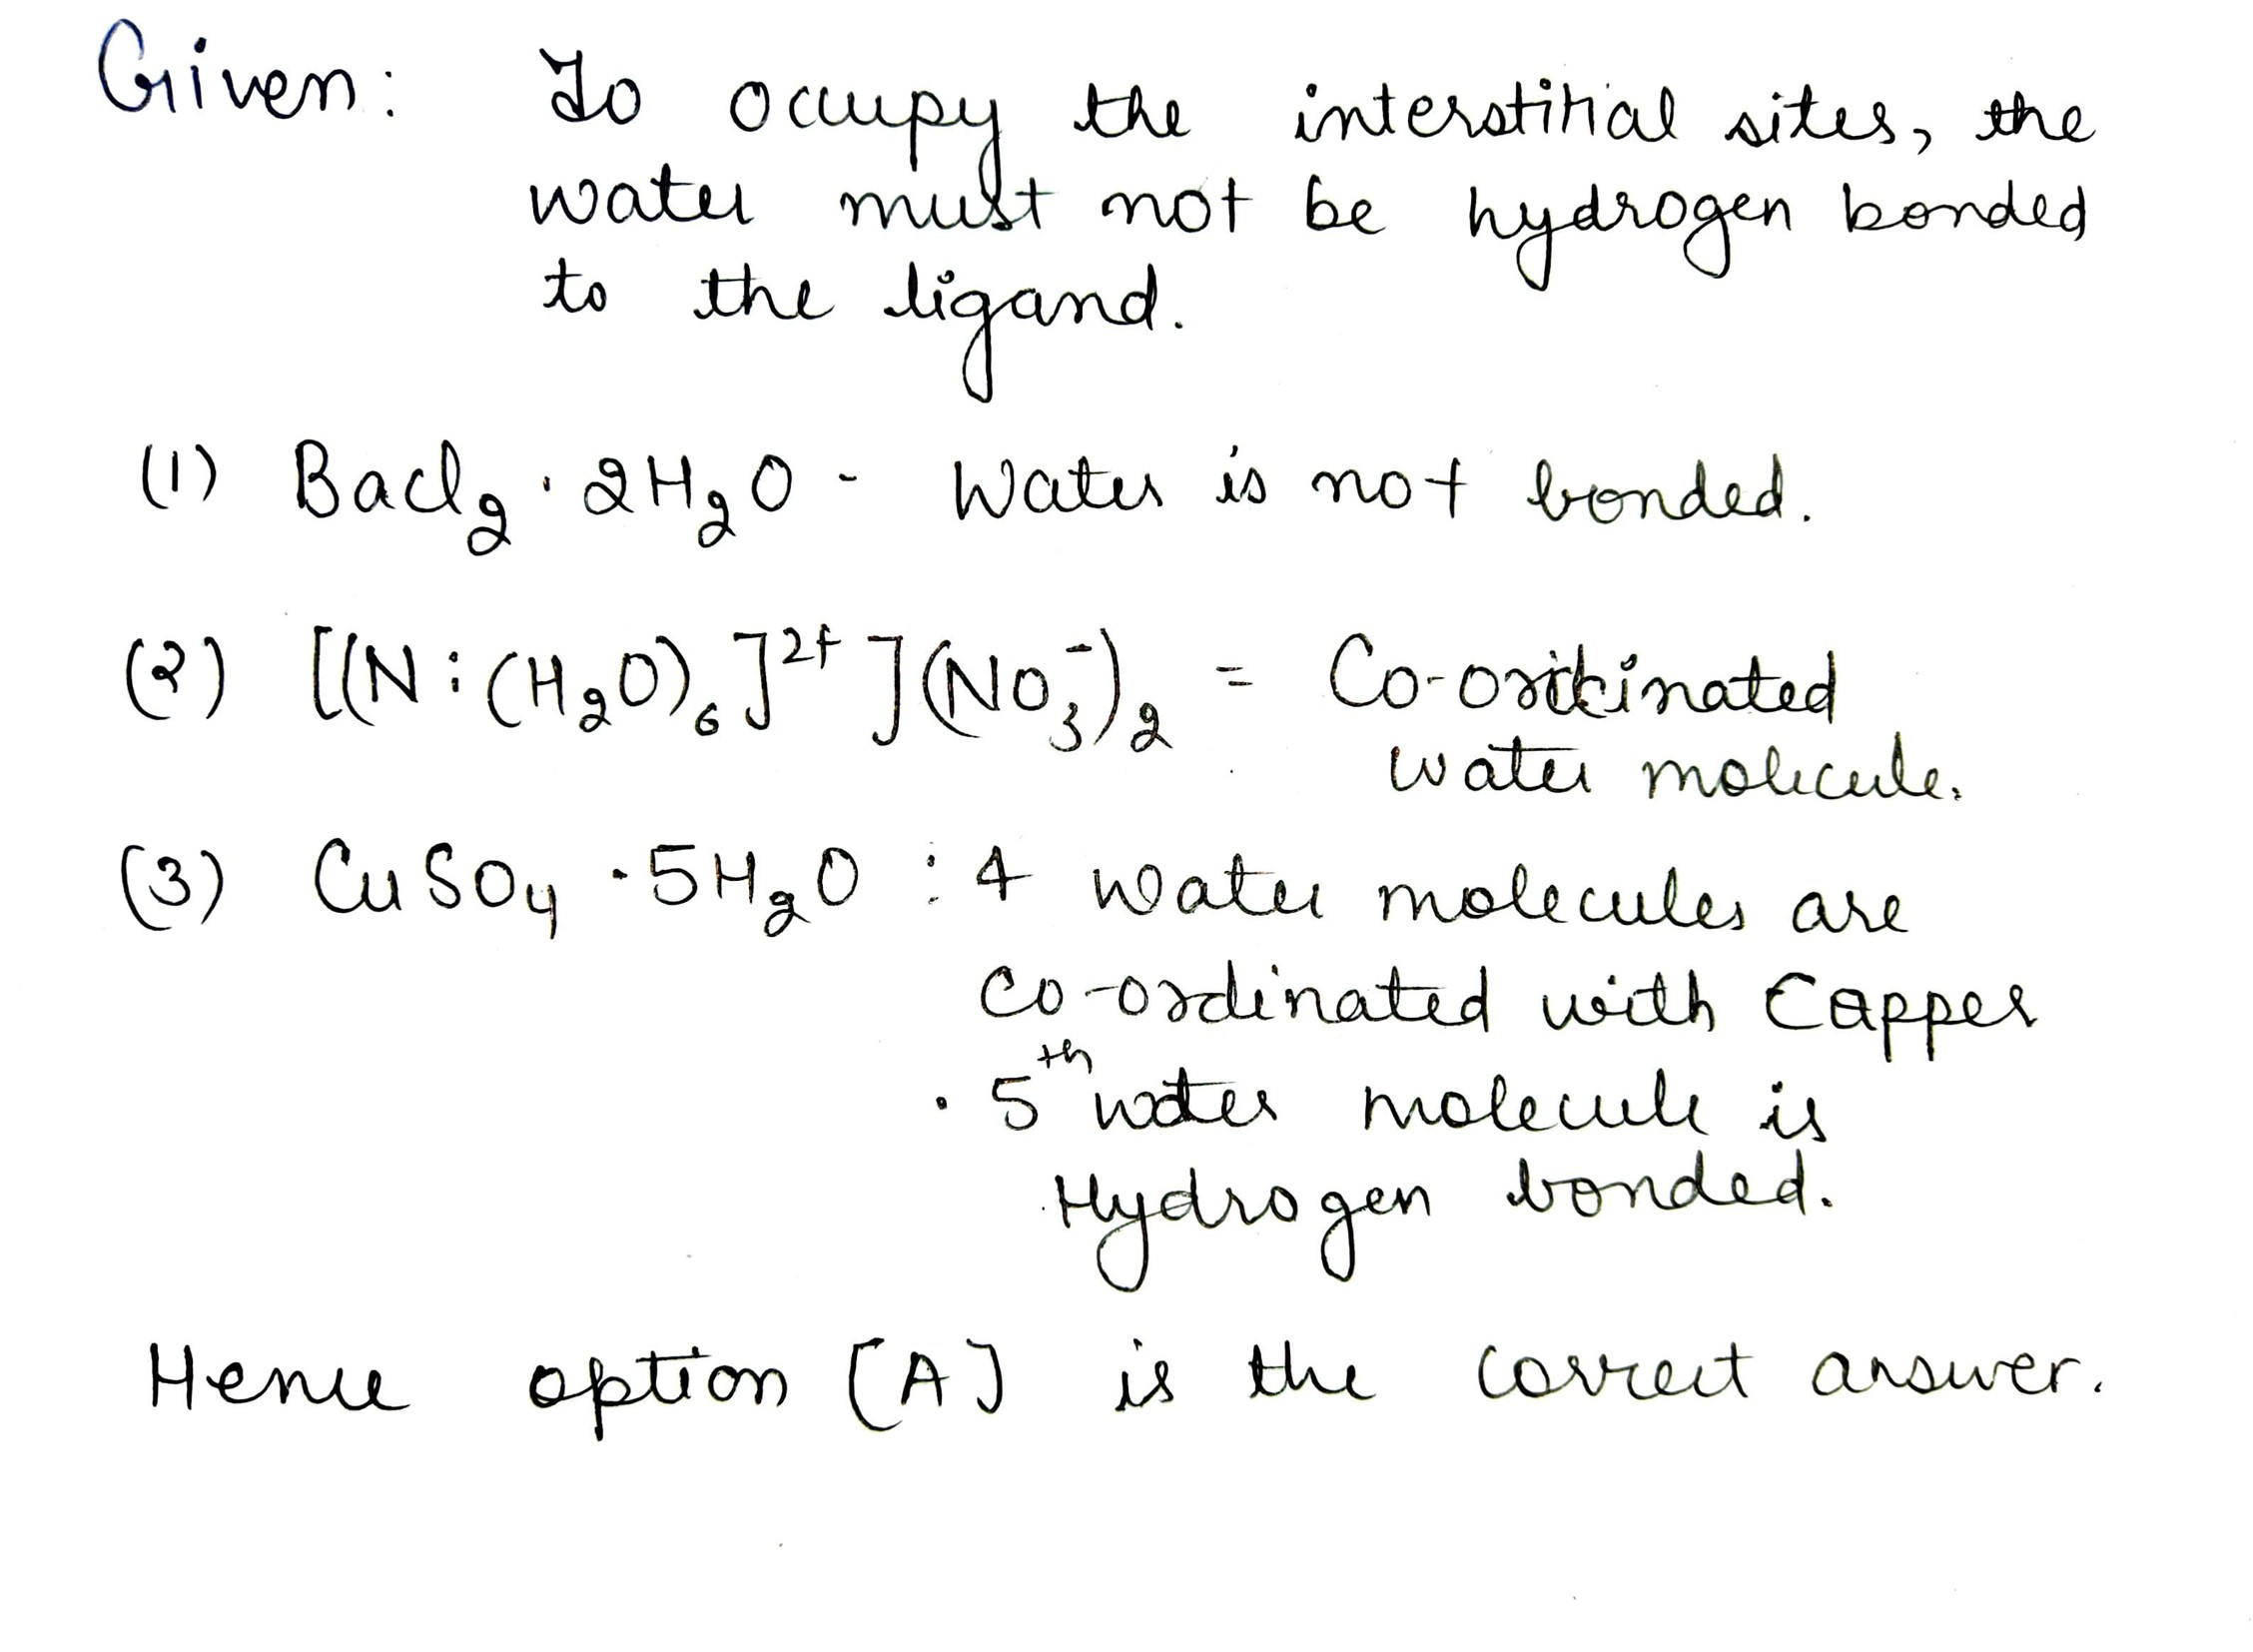 Given: To occupy the interstitial sites, the
water must not be hydrogen bonded
to the ligand.
(1) BaCl₂·2H₂O - Water is not bonded.
(2) [(Ni(H₂O)₆]²⁺](NO₃⁻)₂ = Co-ordinated
water molecule.
(3) CuSO₄·5H₂O : 4 water molecules are
Co-ordinated with Copper
· 5ᵗʰ water molecule is
Hydrogen bonded.
Hence option [A] is the correct answer.